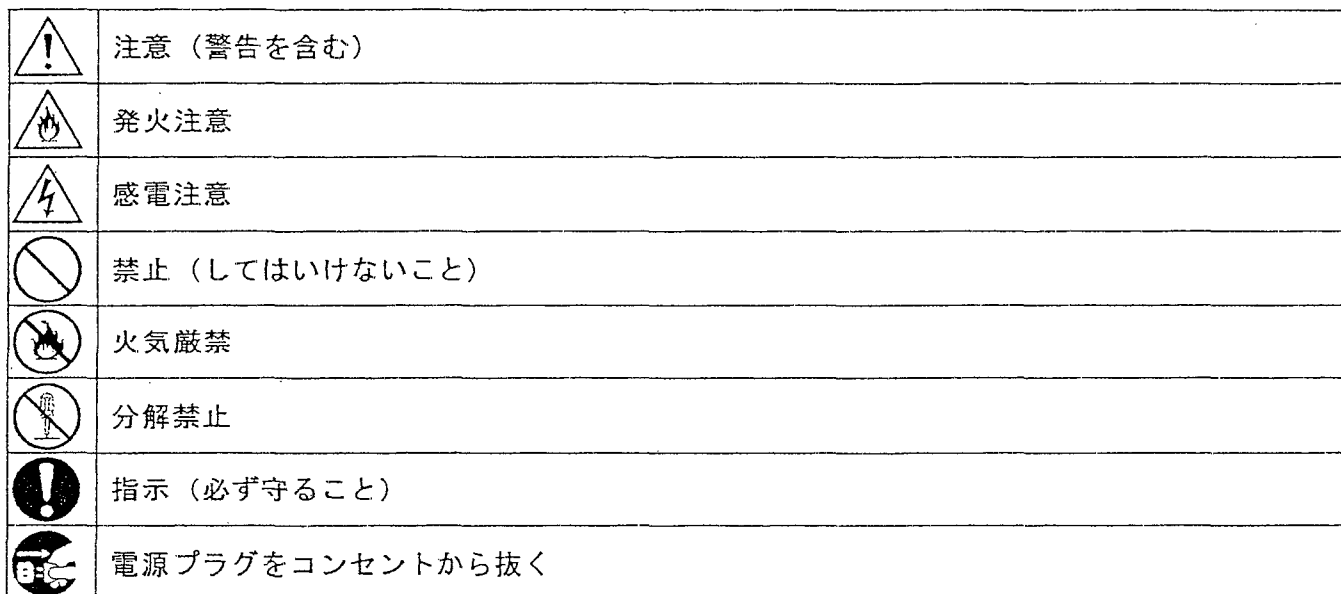 注意（警告を含む）
発火注意
感電注意
禁止（してはいけないこと）
火気厳禁
分解禁止
指示（必ず守ること）
電源プラグをコンセントから抜く